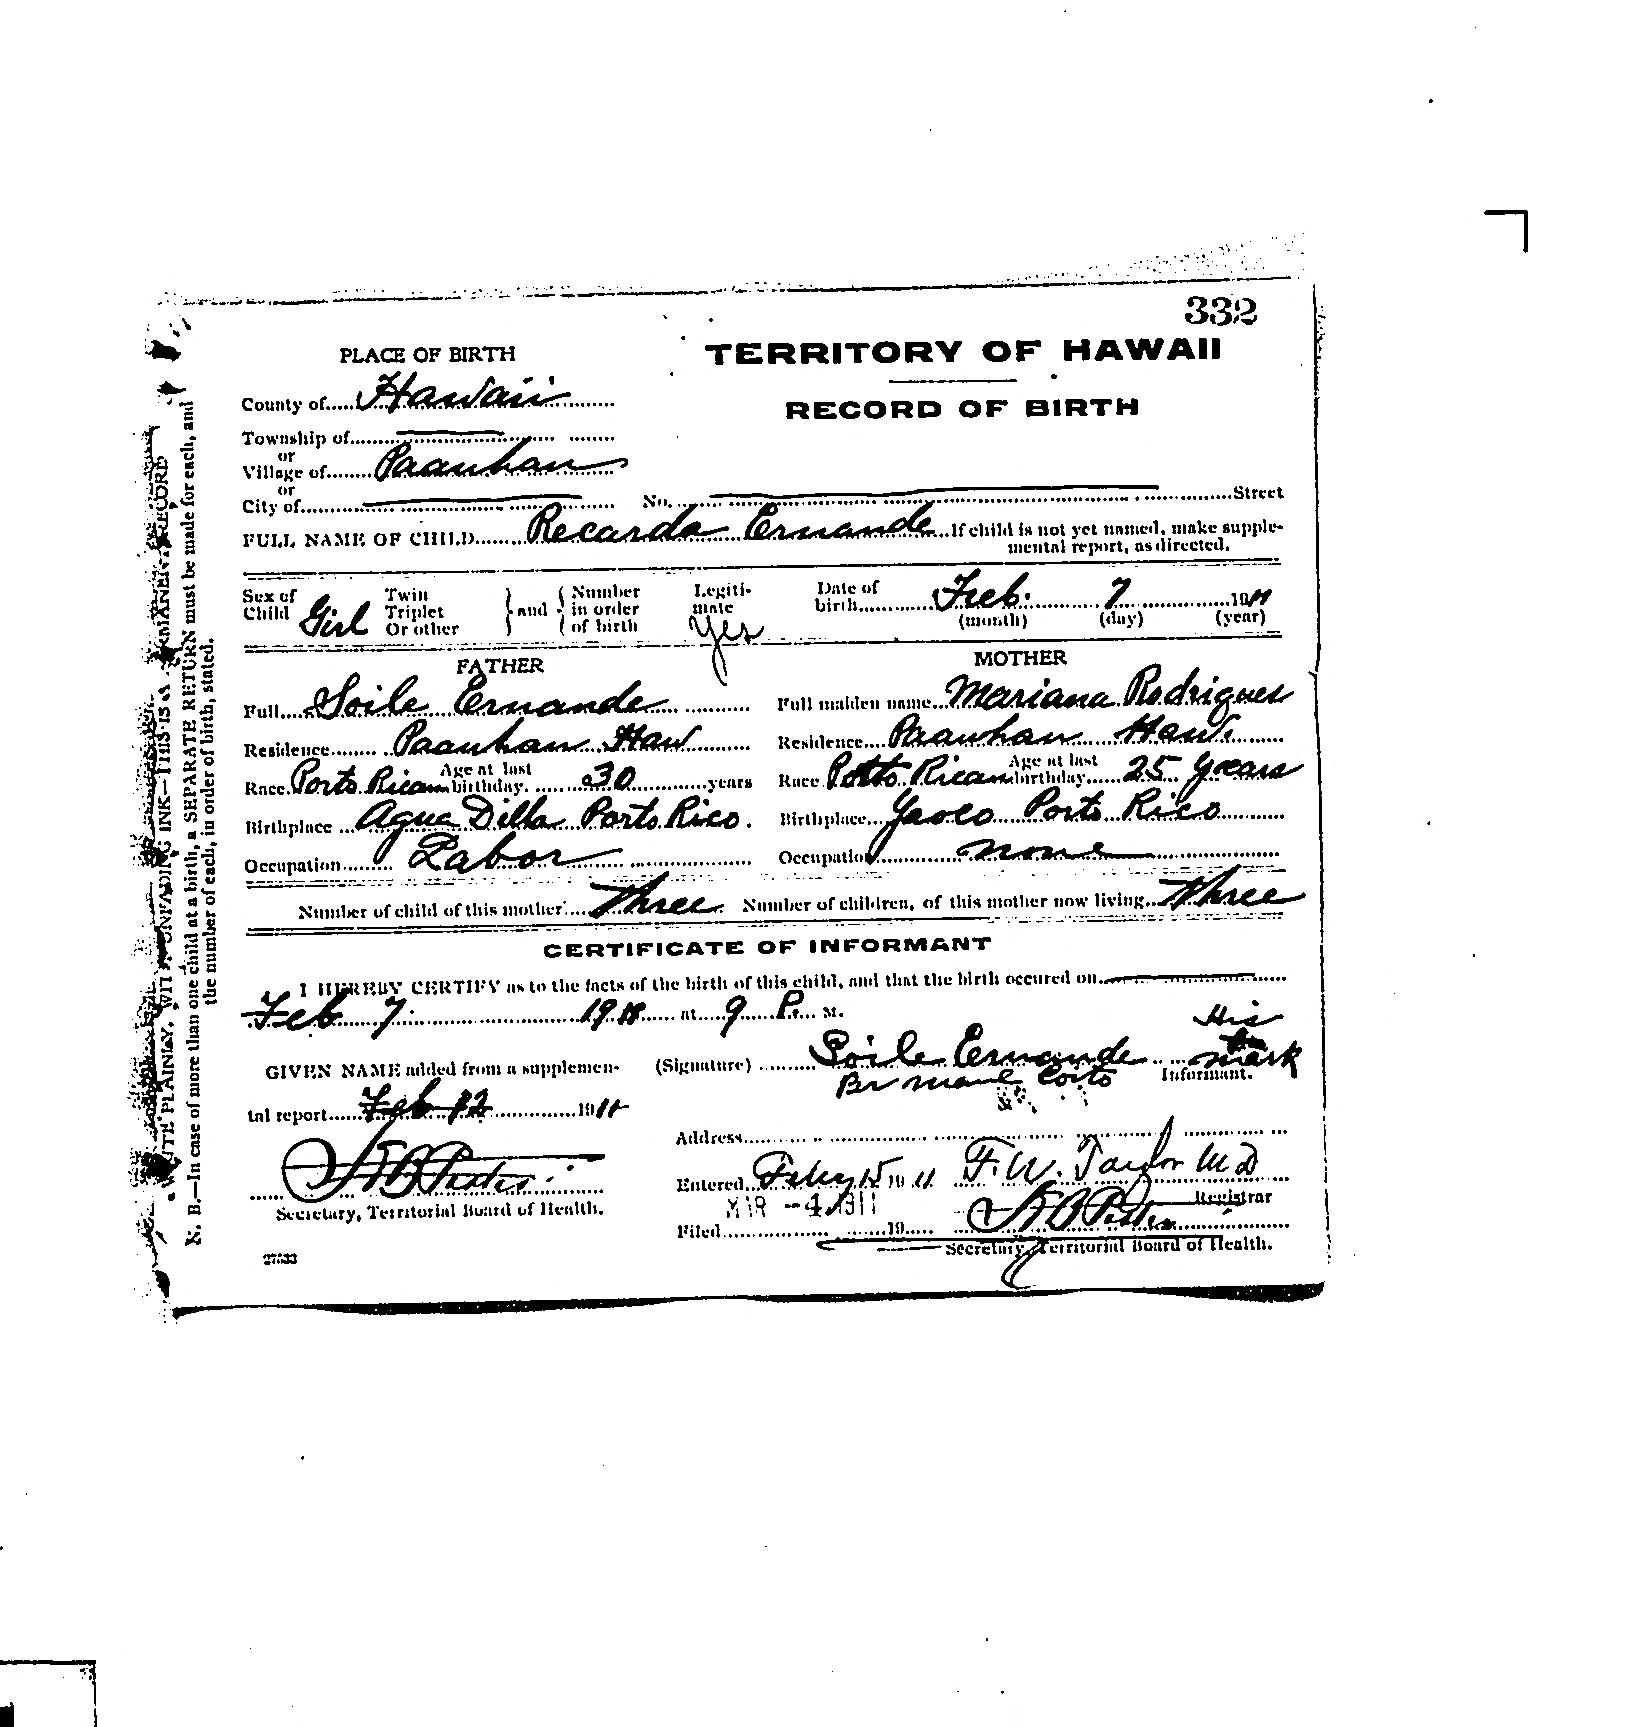 332
PLACE OF BIRTH
TERRITORY OF HAWAII
County of Hawaii
RECORD OF BIRTH
Township of
or
Village of Paauhau
or
City of No. Street
FULL NAME OF CHILD Recarda Ernande If child is not yet named, make supple-
mental report, as directed.
Sex of Child Girl Twin Triplet Or other } and { Number in order of birth Legiti-mate Yes Date of birth Feb. 7 1911
(month) (day) (year)
FATHER
MOTHER
Full Soile Ernande
Full maiden name Mariana Rodrigues
Residence Paauhau Haw
Residence Paauhau Haw.
Race Porto Rican Age at last birthday 30 years
Race Porto Rican Age at last birthday 25 Years
Birthplace Agua Dilla Porto Rico.
Birthplace Yaoco Porto Rico
Occupation Labor
Occupation none
Number of child of this mother Three Number of children, of this mother now living Three
CERTIFICATE OF INFORMANT
I HEREBY CERTIFY as to the facts of the birth of this child, and that the birth occured on
Feb 7 19 at 9 P. M.
His
GIVEN NAME added from a supplemen-
(Signature) Soile Ernande mark
Informant.
tal report Feb 12 191
Address
Entered 15 1911 F. W. Taylor M D
Registrar
MAR -4 1911
Secretary, Territorial Board of Health.
Filed 19
Secretary, Territorial Board of Health.
27533
WRITE PLAINLY, WITH UNFADING INK—THIS IS A PERMANENT RECORD
N. B.—In case of more than one child at a birth, a SEPARATE RETURN must be made for each, and
the number of each, in order of birth, stated.